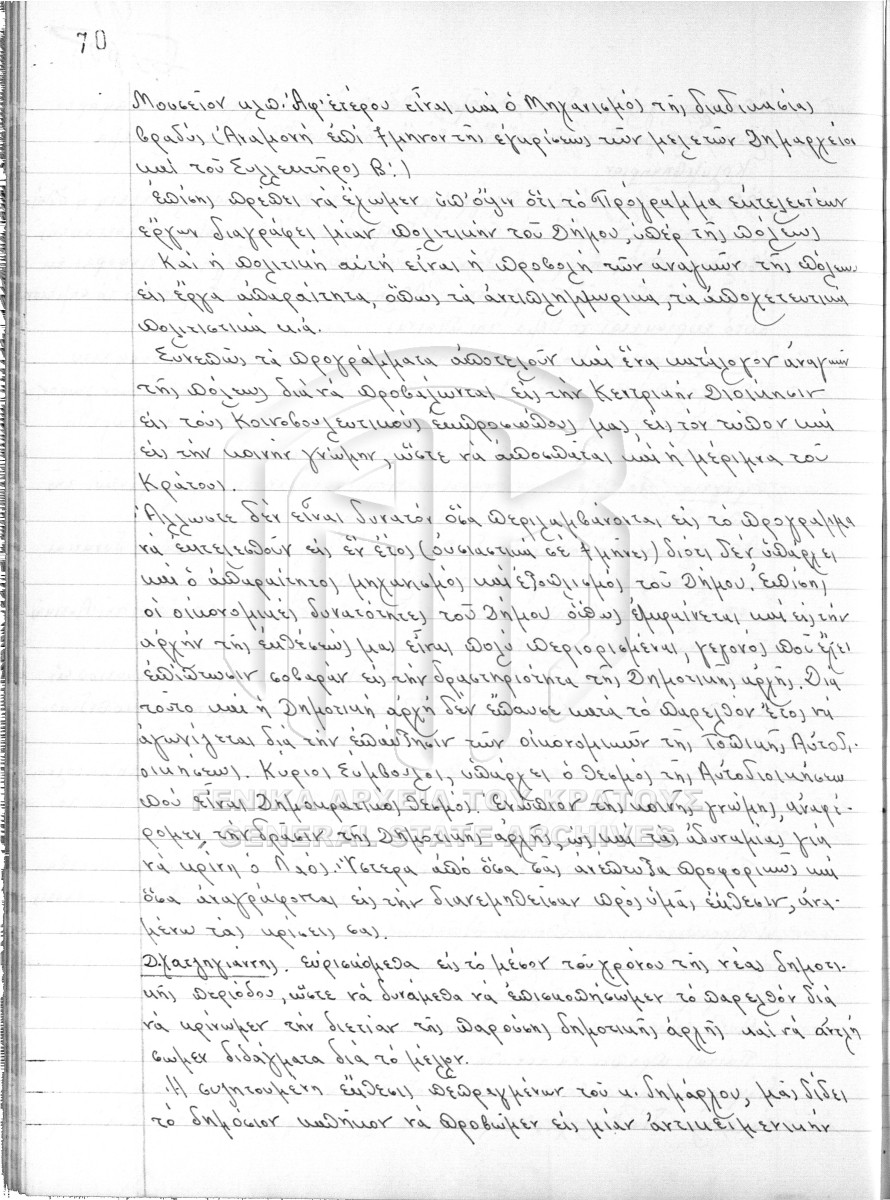 70
Μουσεῖον κλπ. Ἀφ' ἑτέρου εἶναι καί ὁ Μηχανισμός τῆς διαδικασίας
βραδύς (Ἀναμονή ἐπί 7μηνον τῆς ἐγκρίσεως τῶν μελετῶν Δημαρχείου
καί τοῦ Συλλεκτῆρος Β'.)
Ἐπίσης πρέπει νά ἔχωμεν ὑπ' ὄψιν ὅτι τό Πρόγραμμα ἐκτελεστέων
ἔργων διαγράφει μίαν πολιτικήν τοῦ Δήμου, ὑπέρ τῆς πόλεως
Καί ἡ πολιτική αὐτή εἶναι ἡ προβολή τῶν ἀναγκῶν τῆς πόλεως
εἰς ἔργα ἀπαραίτητα, ὅπως τά ἀντιπλημμυρικά, τά ἀποχετευτικά
πολιτιστικά κ.ἄ.
Συνεπῶς τά προγράμματα ἀποτελοῦν καί ἕνα κατάλογον ἀναγκῶν
τῆς πόλεως διά νά προβάλωνται εἰς τήν Κεντρικήν Διοίκησιν
εἰς τούς Κοινοβουλευτικούς ἐκπροσώπους μας, εἰς τόν τύπον καί
εἰς τήν κοινήν γνώμην, ὥστε νά ἀποσπᾶται καί ἡ μέριμνα τοῦ
Κράτους.
Ἄλλωστε δέν εἶναι δυνατόν ὅσα περιλαμβάνονται εἰς τό πρόγραμμα
νά ἐκτελεσθοῦν εἰς ἕν ἔτος (οὐσιαστικά σέ 7 μῆνες) διότι δέν ὑπάρχει
καί ὁ ἀπαραίτητος μηχανισμός καί ἐξοπλισμός τοῦ Δήμου. Ἐπίσης
οἱ οἰκονομικές δυνατότητες τοῦ Δήμου ὅπως ἐμφαίνεται καί εἰς τήν
ἀρχήν τῆς ἐκθέσεώς μας εἶναι πολύ περιορισμέναι, γεγονός πού ἔχει
ἐπίπτωσιν σοβαράν εἰς τήν δραστηριότητα τῆς Δημοτικῆς ἀρχῆς. Διά
τοῦτο καί ἡ Δημοτική ἀρχή δέν ἔπαυσε κατά τό παρελθόν ἔτος νά
ἀγωνίζεται διά τήν ἐπαύξησιν τῶν οἰκονομικῶν τῆς Τοπικῆς Αὐτοδι-
οικήσεως. Κύριοι Σύμβουλοι, ὑπάρχει ὁ θεσμός τῆς Αὐτοδιοικήσεως
πού εἶναι Δημοκρατικός θεσμός. Ἐνώπιον τῆς κοινῆς γνώμης, ἀναφέ-
ρομεν τήν δρᾶσιν τῆς Δημοτικῆς ἀρχῆς, ὡς καί τάς ἀδυναμίας γιά
νά κρίνῃ ὁ Λαός. Ὕστερα ἀπό ὅσα σᾶς ἀνέπτυξα προφορικῶς καί
ὅσα ἀναγράφονται εἰς τήν διανεμηθεῖσαν πρός ὑμᾶς ἔκθεσιν, ἀνα-
μένω τάς κρίσεις σας.
Δ. Χατζηγιάννης. Εὑρισκόμεθα εἰς τό μέσον τοῦ χρόνου τῆς νέας δημοτι-
κῆς περιόδου, ὥστε νά δυνάμεθα νά ἐπισκοπήσωμεν τό παρελθόν διά
νά κρίνωμεν τήν διετίαν τῆς παρούσης δημοτικῆς ἀρχῆς καί νά ἀντλή
σωμεν διδάγματα διά τό μέλλον.
Ἡ συζητουμένη ἔκθεσις πεπραγμένων τοῦ κ. δημάρχου, μᾶς δίδει
τό δημόσιον καθῆκον νά προβῶμεν εἰς μίαν ἀντικειμενικήν
ΓΕΝΙΚΑ ΑΡΧΕΙΑ ΤΟΥ ΚΡΑΤΟΥΣ
GENERAL STATE ARCHIVES